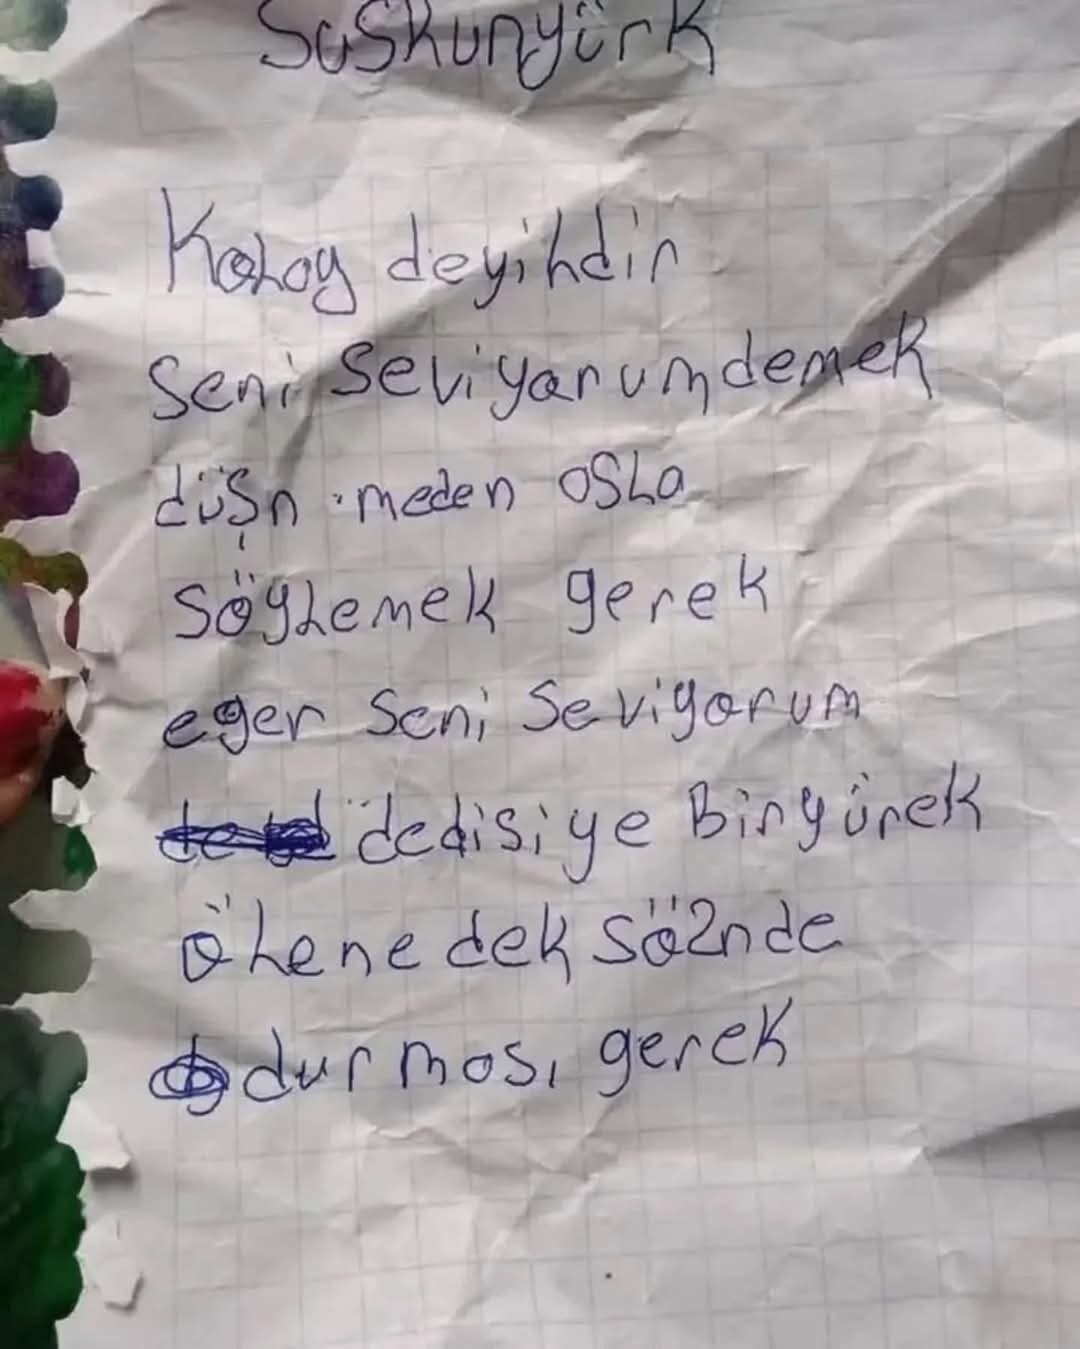 Suskunyürk
Kolay deyildir
seni seviyorumdemek
düşnmeden asla
söylemek gerek
eger seni seviyorum
dedisiye Biryürek
ölene dek söznde
durması gerek